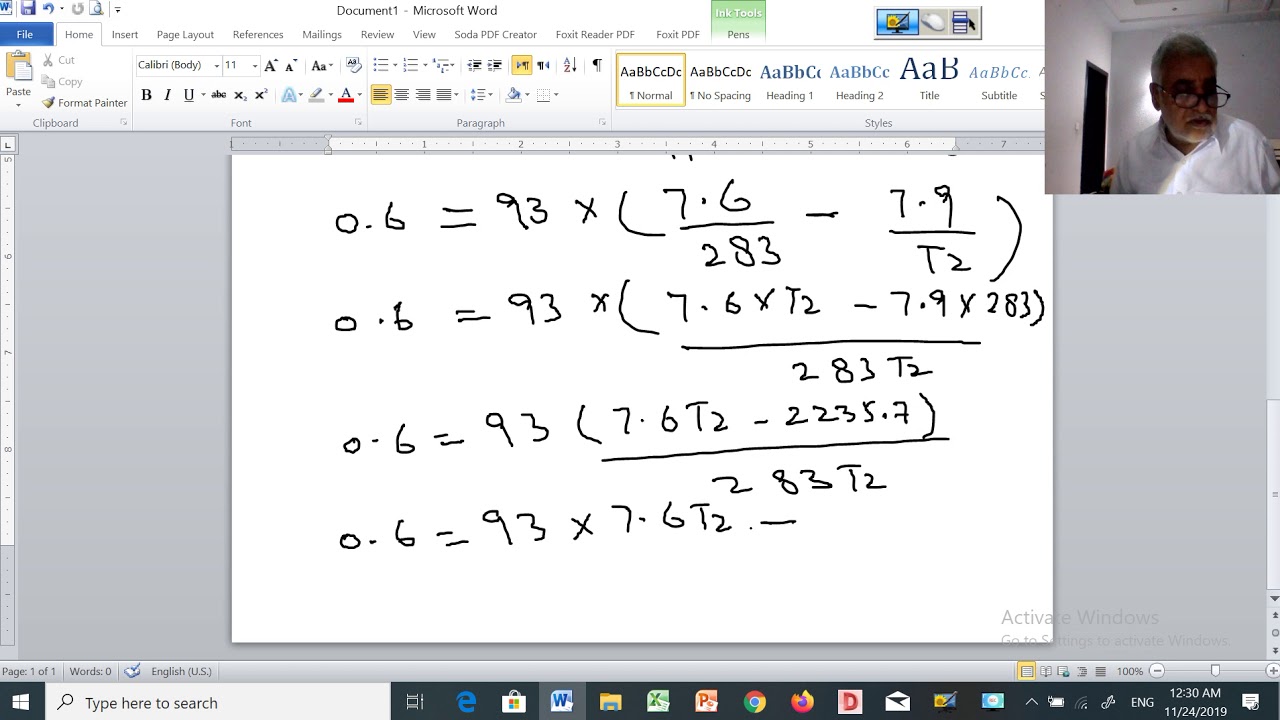 Document1 - Microsoft Word
Ink Tools
File Home Insert Page Layout References Mailings Review View Soda PDF Creator Foxit Reader PDF Foxit PDF Pens
Paste
Cut
Copy
Format Painter
Calibri (Body) 11
AaBbCcDc AaBbCcDc AaBbCc AaBbCc AaB AaBbCc.
¶ Normal ¶ No Spacing Heading 1 Heading 2 Title Subtitle
Clipboard Font Paragraph Styles
1 1 2 3 4 5 6 7
0.6 = 93 × ( 7.6/283 - 7.9/T2 )
0.6 = 93 × ( 7.6 × T2 - 7.9 × 283)
283 T2
0.6 = 93 ( 7.6 T2 - 2235.7 )
283 T2
0.6 = 93 × 7.6 T2 . -
Activate Windows
Go to Settings to activate Windows.
Page: 1 of 1 Words: 0 English (U.S.) 100%
Type here to search
ENG
12:30 AM
11/24/2019